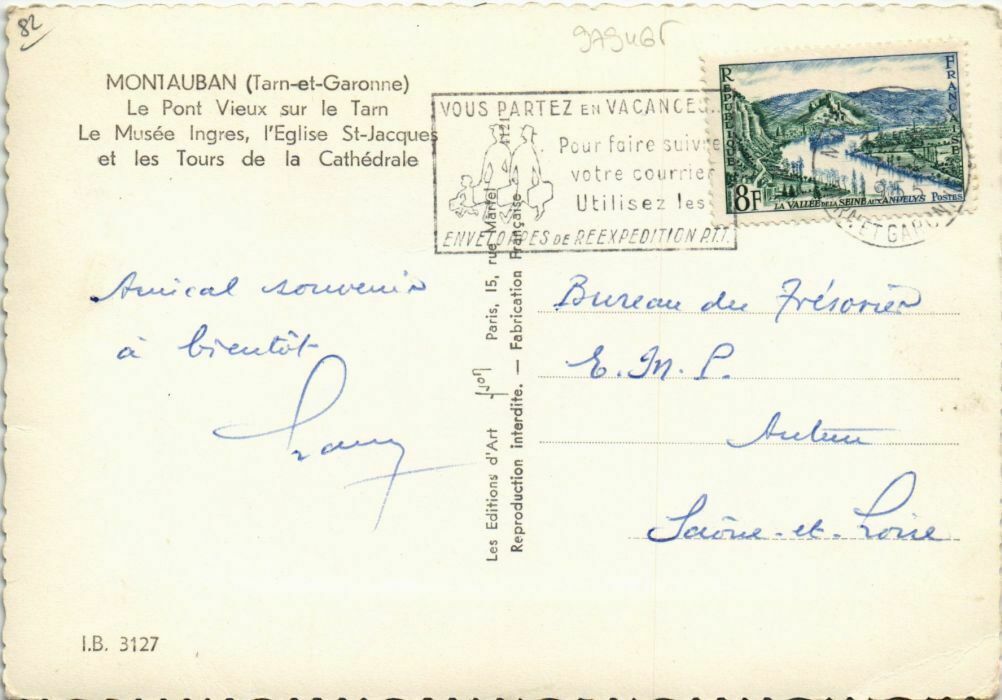 82
MONTAUBAN (Tarn-et-Garonne)
Le Pont Vieux sur le Tarn
Le Musée Ingres, l'Eglise St-Jacques
et les Tours de la Cathédrale
VOUS PARTEZ EN VACANCES...
Pour faire suivre
votre courrier
Utilisez les
ENVELOPPES DE REEXPEDITION P.T.T.
REPUBLIQUE FRANÇAISE
8F
LA VALLEE DE LA SEINE AUX ANDELYS POSTES
ET GARONNE
Amical souvenir
à bientôt
Les Editions d'Art Yvon Paris, 15, rue Martel
Reproduction interdite. — Fabrication Française
Bureau du Trésorier
E. M. P.
Autun
Saône-et-Loire
I.B. 3127